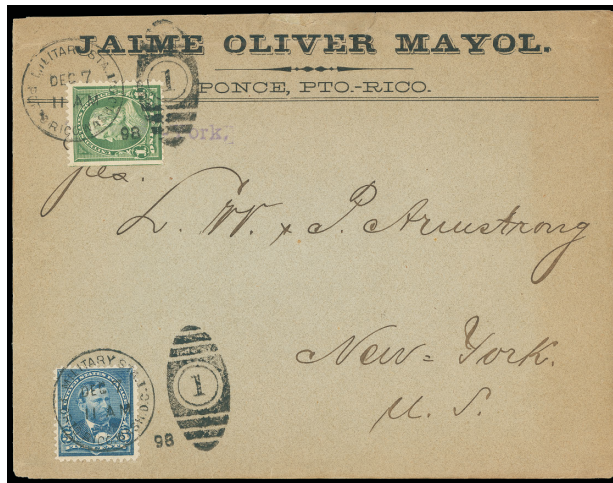 JAIME OLIVER MAYOL.
PONCE, PTO.-RICO.
MILITARY STA.
DEC 7
11 AM
RICO
98
1
ork,
L. W. & P. Armstrong
New-York.
U. S.
MILITARY STA. 1.
DEC
11 AM
98
1